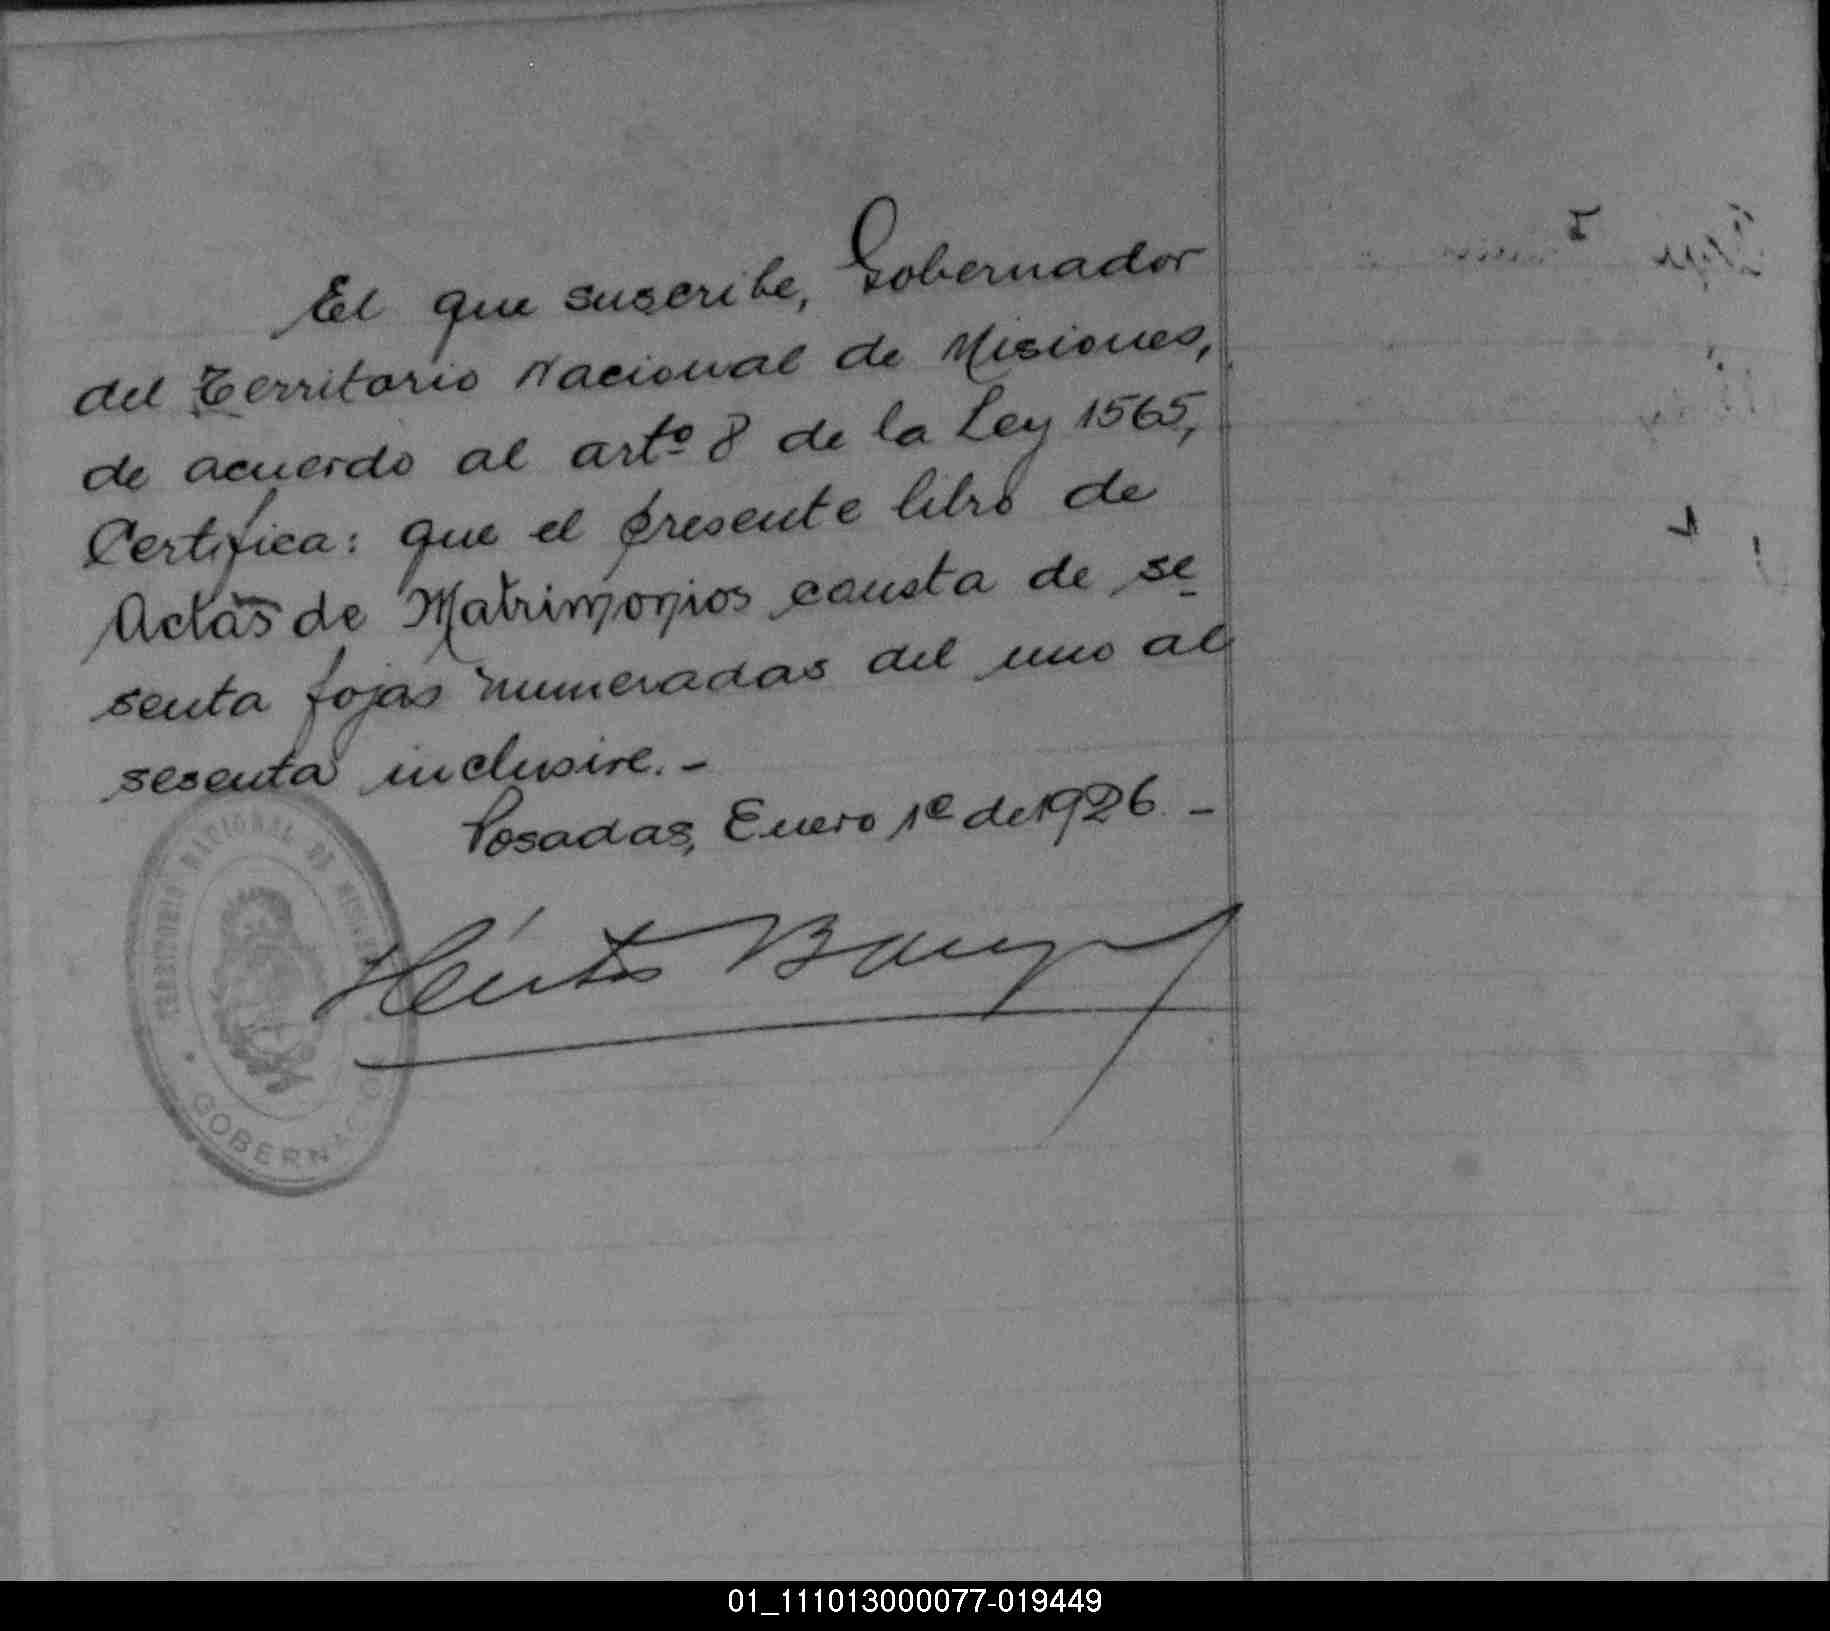 El que suscribe, Gobernador
del Territorio Nacional de Misiones,
de acuerdo al artº 8 de la Ley 1565,
Certifica: que el presente libro de
Actas de Matrimonios consta de se
senta fojas numeradas del uno al
sesenta inclusive.-
Posadas, Enero 1º de 1926.-
Héctor
TERRITORIO NACIONAL DE
GOBERNACION
01_111013000077-019449